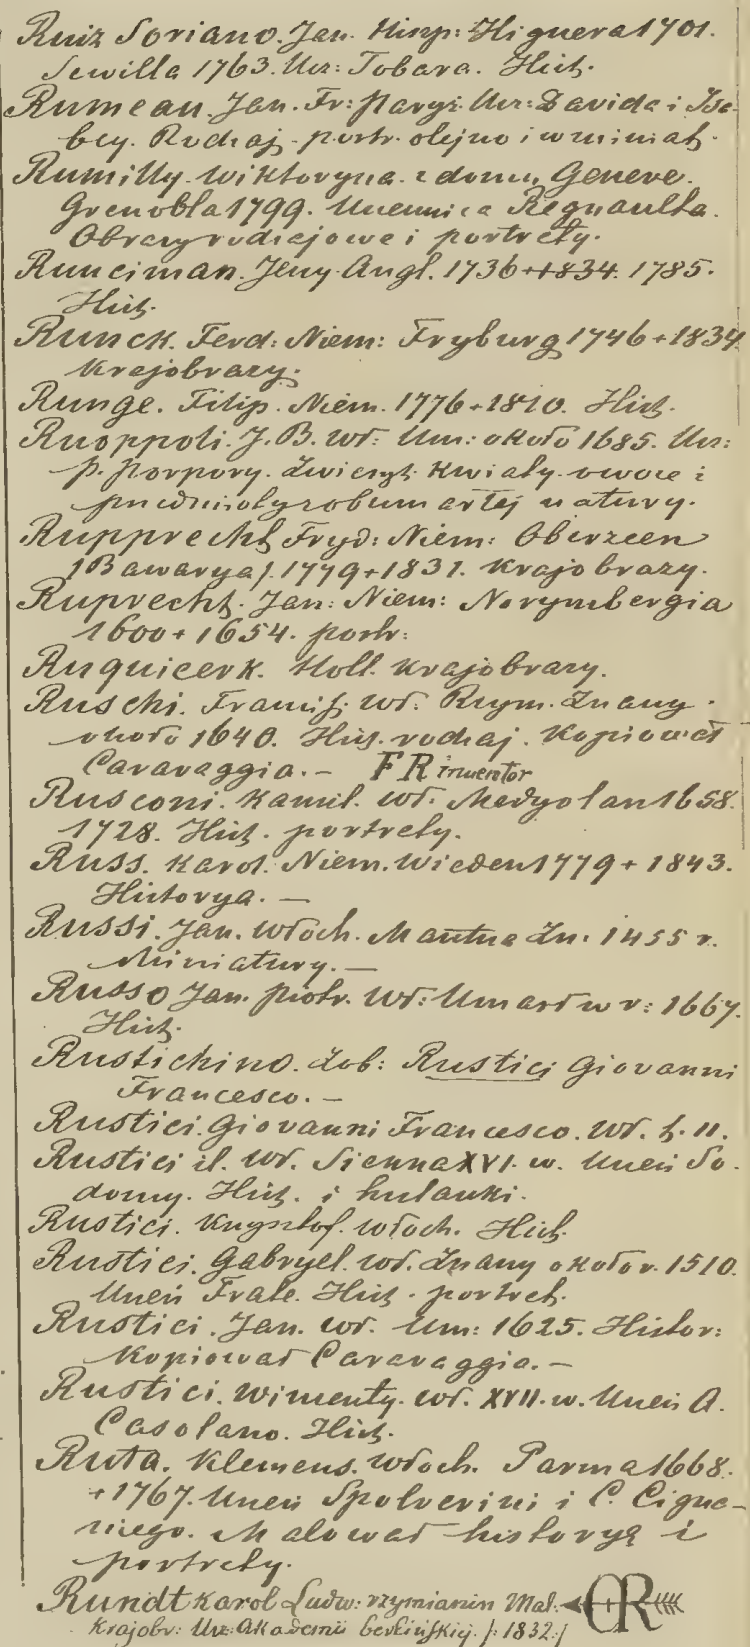 Ruiz Soriano. Jan. Hisp: Higuera 1701.
Sewilla 1763. Ucz: Tobara. Hist.
Rumeau. Jan. Fr: Paryż. Ucz: Davida i Isa-
bey. Rodzaj. portr. olejno i w miniat.
Rumilly. Wiktoryna z domu, Geneve.
Grenobla 1799. Uczennica Regnaulta.
Obrazy rodzajowe i portrety.
Runciman. Jerzy Angl. 1736 ++1834. 1785.
Hist.
Runck. Ferd: Niem: Fryburg 1746 + 1834
Krajobrazy.
Runge. Filip. Niem. 1776 + 1810. Hist.
Ruoppoli. J. B. Wł: Um: około 1685. Ucz:
p. Porpory. Zwierzęt. kwiaty. owoce i
przedmioty z obumarłej natury.
Rupprecht Fryd: Niem: Oberzeen
/Bawarya/. 1779 + 1831. Krajobrazy.
Ruprecht. Jan: Niem: Norymbergia
1600 + 1654. portr:
Ruquicerk. Holl. Krajobrazy.
Ruschi. Francisz. Wł. Rzym. Znany
około 1640. Hist. rodzaj. Kopiował
Caravaggia. — F R inventor
Rusconi. Kamil. Wł. Medyolan 1658.
1728. Hist. portrety.
Russ. Karol. Niem. Wiedeń 1779 + 1843.
Historya. —
Russi. Jan. Włoch. Mantua Zn. 1455 r.
Miniatury. —
Russo Jan. Piotr. Wł: Umarł w r: 1667.
Hist.
Rustichino. Zob: Rustici Giovanni
Francesco. —
Rustici. Giovanni Francesco. Wł. t. II.
Rustici il. Wł. Sienna XVI. w. Uczeń So-
domy. Hist. i hulanki.
Rustici. Krzysztof. Włoch. Hist.
Rustici. Gabryel. Wł. Znany około r. 1510.
Uczeń Frate. Hist. portret.
Rustici. Jan. Wł. Um: 1625. Histor:
Kopiował Caravaggia. —
Rustici. Wincenty. Wł. XVII. w. Uczeń A.
Casolano. Hist.
Ruta. Klemens. Włoch. Parma 1668.
+ 1767. Uczeń Spolverini i C. Cigna-
niego. Malował historyą i
portrety.
Rundt Karol Ludw: rzymianin Mal. CR
Krajobr: Ucz: Akademii berlińskiej. /: 1832:/